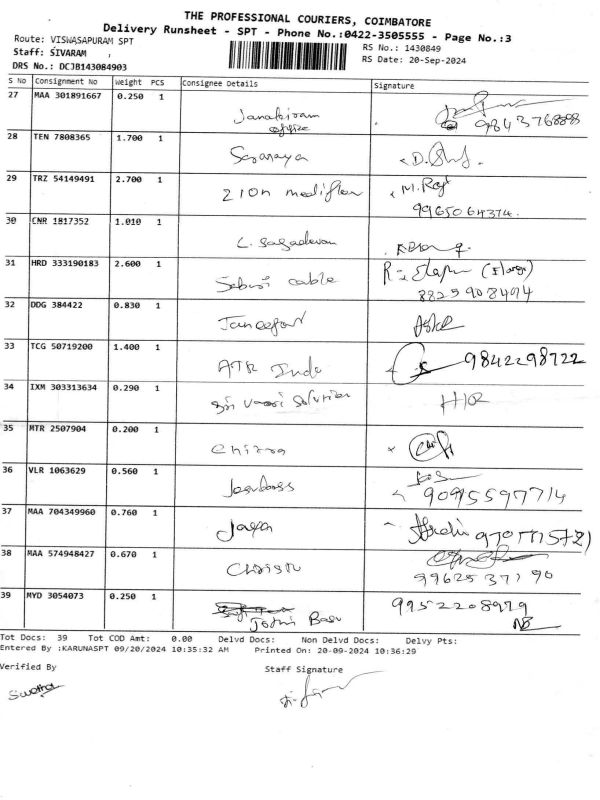 THE PROFESSIONAL COURIERS, COIMBATORE
Delivery Runsheet - SPT - Phone No.:0422-3505555 - Page No.:3
Route: VISWASAPURAM SPT
RS No.: 1430849
Staff: SIVARAM
RS Date: 20-Sep-2024
DRS No.: DCJB143084903
S No Consignment No Weight PCS Consignee Details Signature
27 MAA 301891667 0.250 1 Janakiram
office
28 TEN 7808365 1.700 1 Saranaya
29 TRZ 54149491 2.700 1 ZION mediflen M. Raj
9965064374.
30 CNR 1817352 1.010 1 L. Sagadevan
31 HRD 333190183 2.600 1 cable
8825908494
32 DDG 384422 0.830 1
33 TCG 50719200 1.400 1 ATR Indo 9842298722
34 IXM 303313634 0.290 1 Sri solution
35 MTR 2507904 0.200 1 Chitra
36 VLR 1063629 0.560 1
9095597714
37 MAA 704349960 0.760 1 Jaya
38 MAA 574948427 0.670 1
9962537190
39 MYD 3054073 0.250 1 9952208979
Jothi Basu
Tot Docs: 39 Tot COD Amt: 0.00 Delvd Docs: Non Delvd Docs: Delvy Pts:
Entered By :KARUNASPT 09/20/2024 10:35:32 AM Printed On: 20-09-2024 10:36:29
Verified By Staff Signature